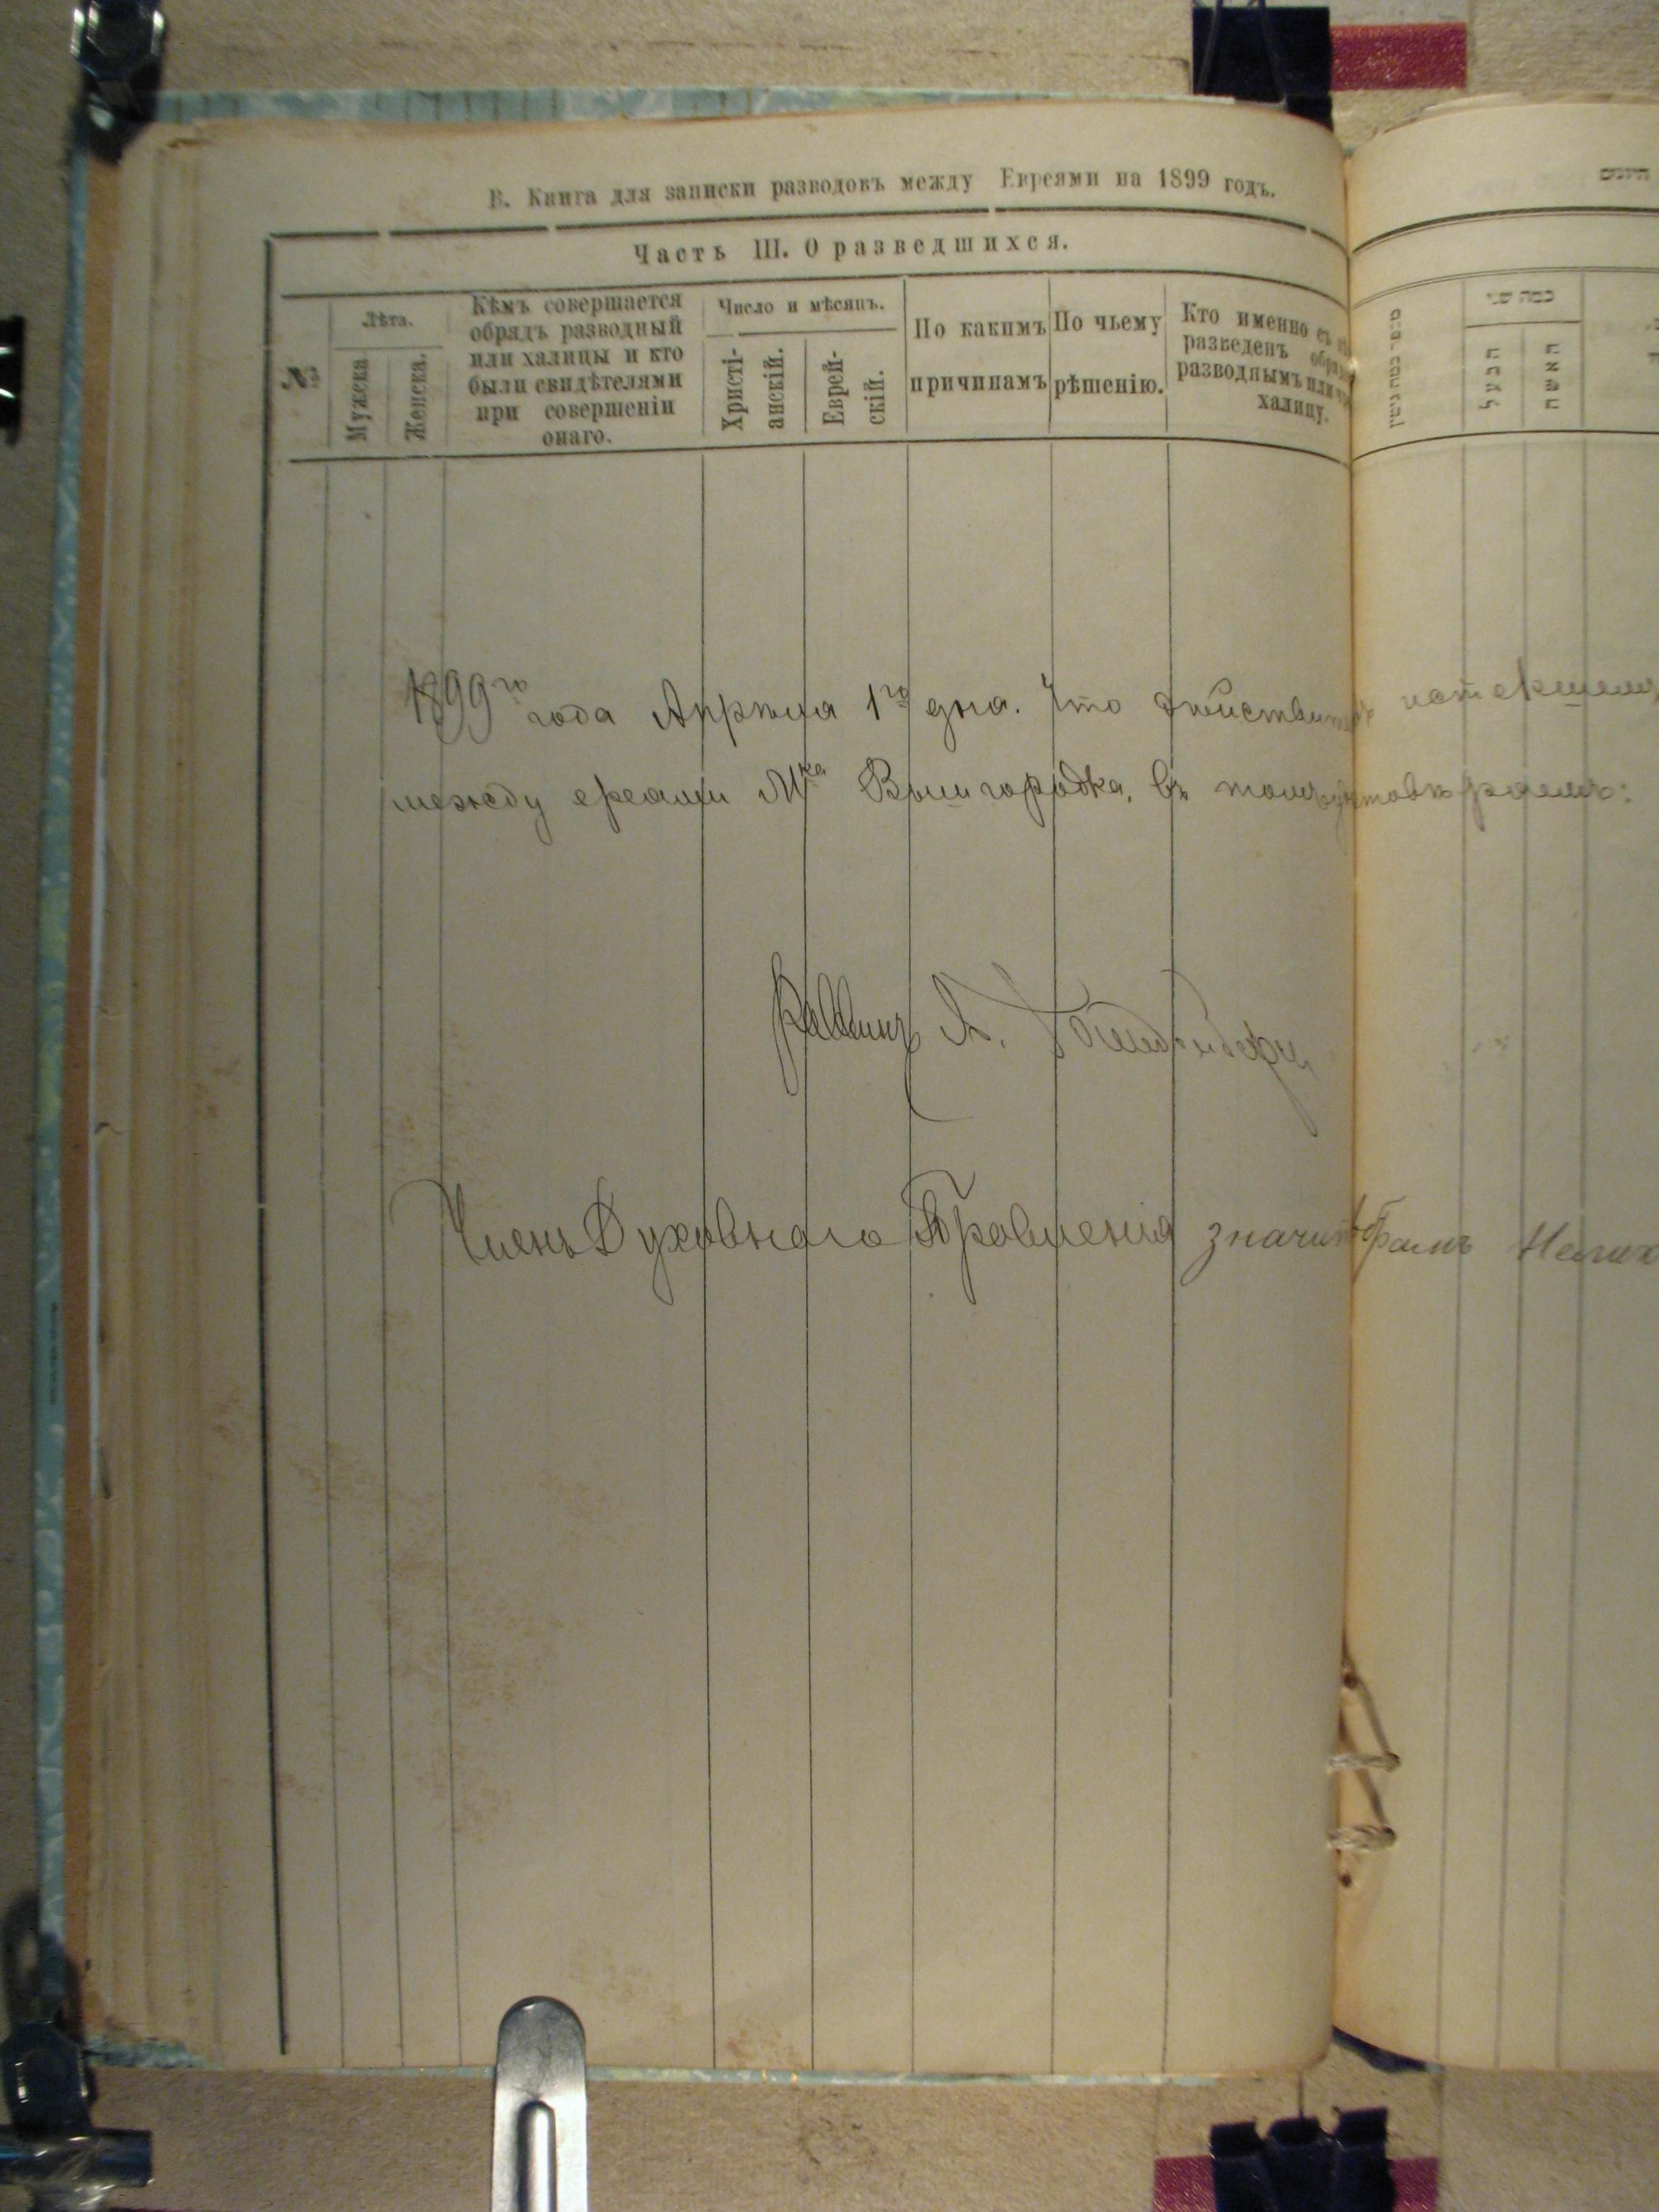 В. Книга для записки разводовъ между Евреями на 1899 годъ.
Часть III. О разведшихся.
№
Лѣта.
Мужска
Женска.
Кѣмъ совершается
обрядъ разводный
или халицы и кто
были свидѣтелями
при совершеніи
онаго.
Число и мѣсяцъ.
Христі-
анскій.
Еврей-
скій.
По какимъ
причинамъ
По чьему
рѣшенію.
Кто именно съ
разведенъ
разводнымъ или
халицу.
1899го года Апрѣля 1го дня. Что
между М-ка Вышгородка, въ томъ
Раввинъ А.
Членъ Духовнаго Правленія
כמה שני
הבעל
האשה